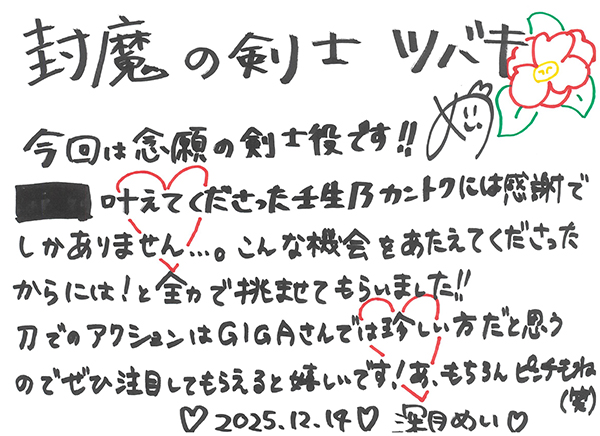 封魔の剣士 ツバキ
めい
今回は念願の剣士役です!!
叶えてくださった壬生乃カントクには感謝で
しかありません…。こんな機会をあたえてくださった
からには!と全力で挑ませてもらいました!!
刀でのアクションはGIGAさんでは珍しい方だと思う
のでぜひ注目してもらえると嬉しいです!あ、もちろんピンチもね
(笑)
♡2025.12.14♡ 深月めい♡